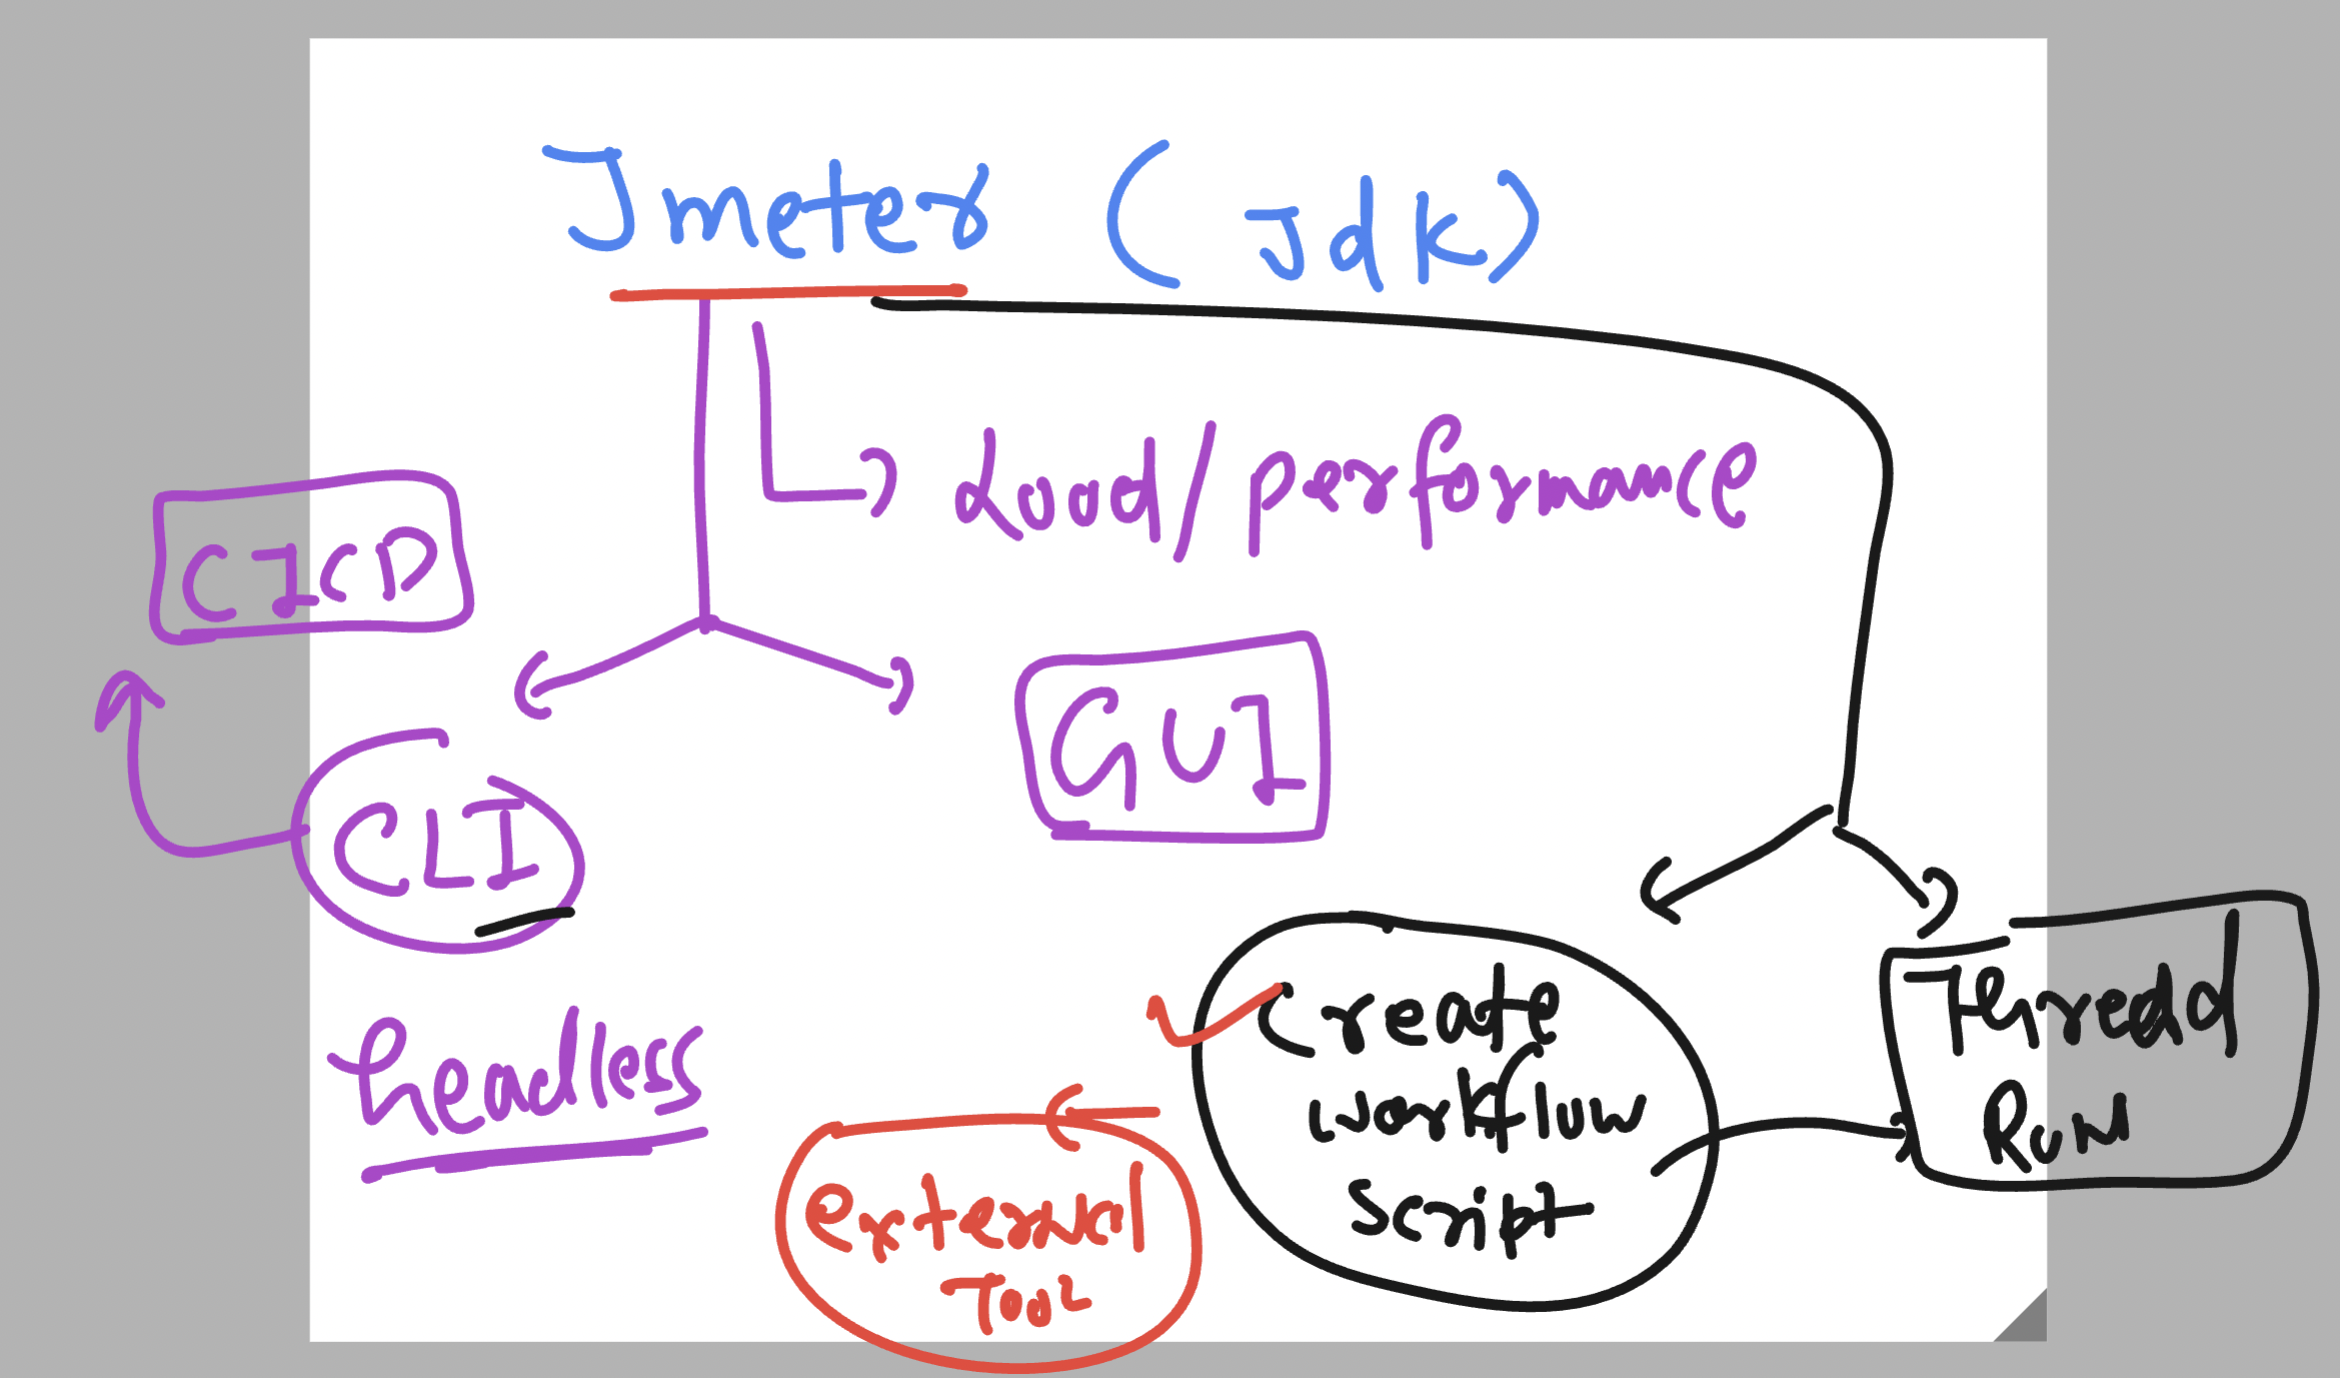 Jmeter (Jdk)
Load/performance
CICD
GUI
CLI
headless
Create
workflow
script
Thread
Run
external
Tool